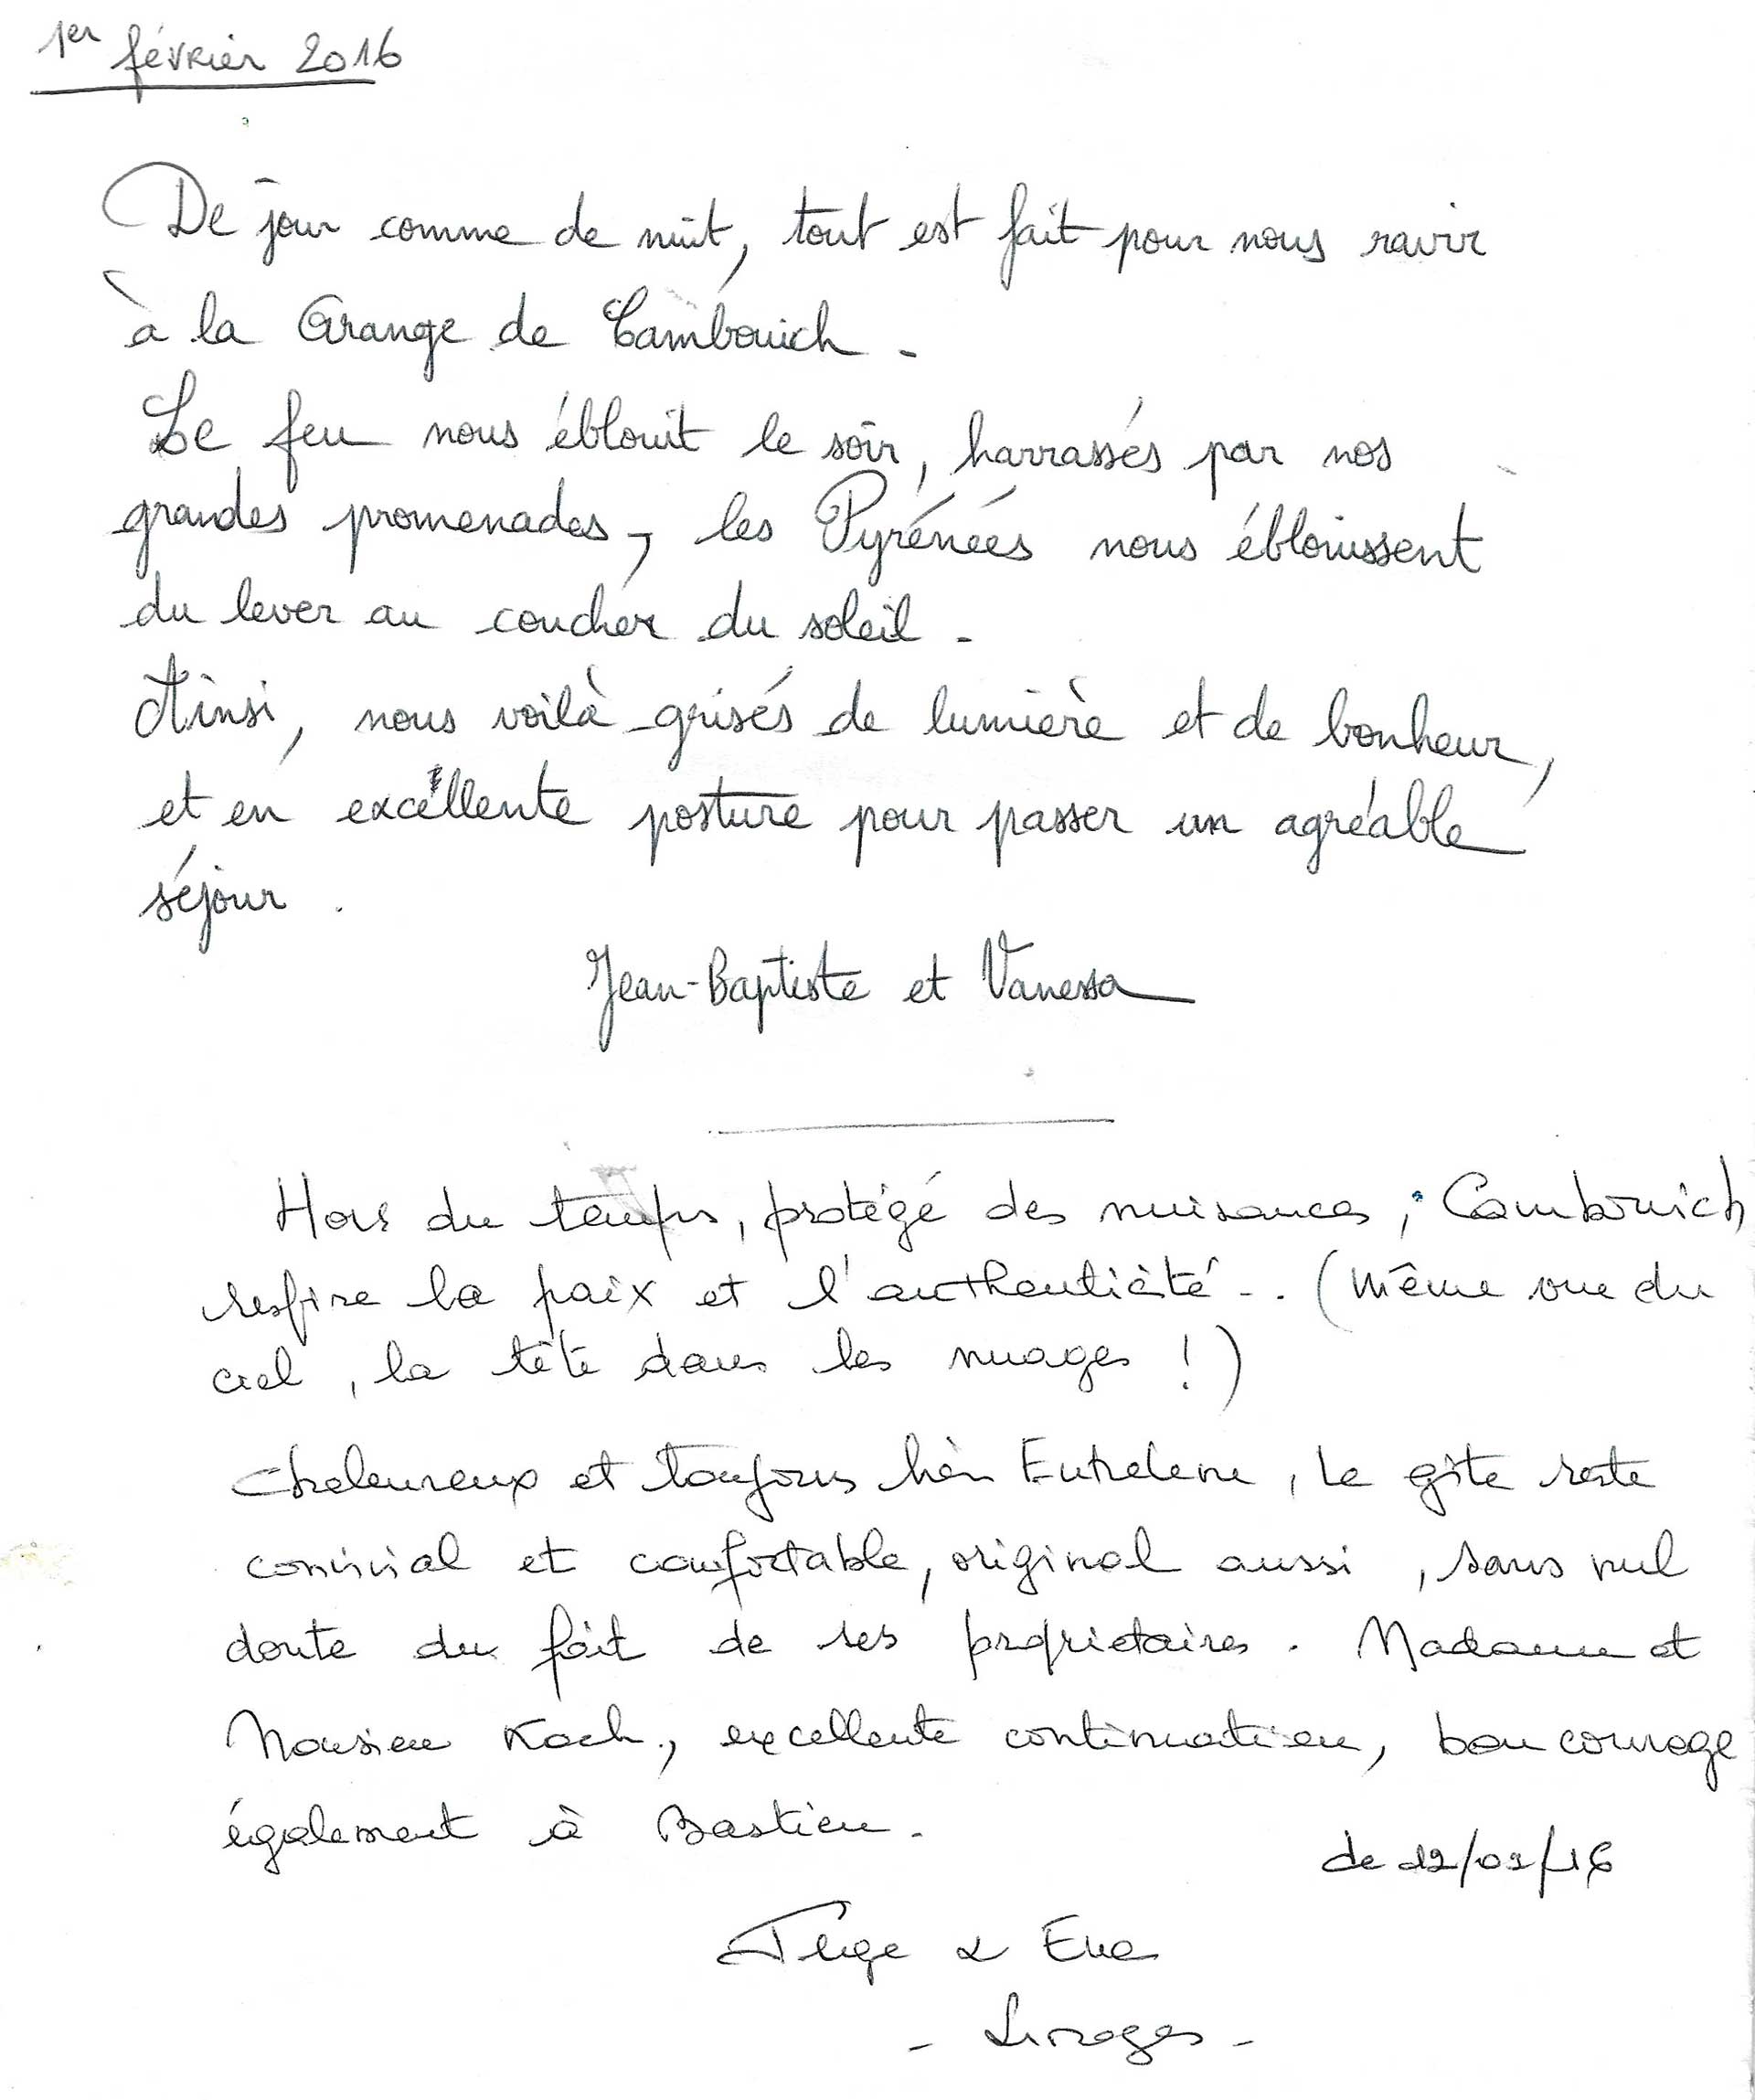 1er février 2016
De jour comme de nuit, tout est fait pour nous ravir
à la Grange de Cambouich.
Le feu nous éblouit le soir, harrassés par nos
grandes promenades, les Pyrénées nous éblouissent
du lever au coucher du soleil.
Ainsi, nous voilà grisés de lumière et de bonheur,
et en excellente posture pour passer un agréable
séjour.
Jean-Baptiste et Vanessa
Hors du temps, protégé des nuisances, Cambouich
respire la paix et l'authenticité.. (même vue du
ciel, la tête dans les nuages !)
Chaleureux et toujours bien Entretenu, le gîte reste
convivial et confortable, original aussi, sans nul
doute du fait de ses propriétaires. Madame et
Monsieur Koch, excellente continuation, bon courage
également à Bastien.
de 12/02/16
& Eve
- Limoges -